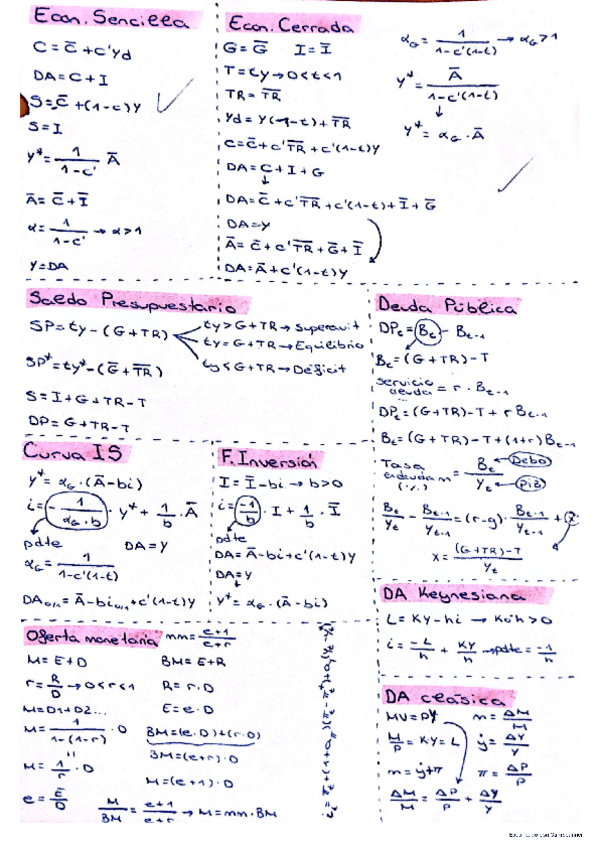 Econ. Sencilla
C = C̄ + c'Yd
DA = C + I
S = C̄ + (1-c')Y
S = I
Y* = 1/(1-c') Ā
Ā = C̄ + Ī
α = 1/(1-c') → α>1
Y = DA
Econ. Cerrada
G = Ḡ I = Ī
T = tY → 0<t<1
TR = T̄R̄
Yd = Y(1-t) + T̄R̄
C = C̄ + c'T̄R̄ + c'(1-t)Y
DA = C + I + G
↓
DA = C̄ + c'T̄R̄ + c'(1-t) + Ī + Ḡ
DA = Y
Ā = C̄ + c'T̄R̄ + Ḡ + Ī
DA = Ā + c'(1-t)Y
α_G = 1/(1-c'(1-t)) → α_G>1
Y* = Ā/(1-c'(1-t))
↓
Y* = α_G · Ā
Saldo Presupuestario
SP = tY - (G+TR)
tY > G+TR → Superavit
tY = G+TR → Equilibrio
tY < G+TR → Déficit
SP* = tY* - (Ḡ + T̄R̄)
S = I + G + TR - T
DP = G + TR - T
Deuda Pública
DP_t = B_t - B_t-1
B_t = (G+TR) - T
servicio deuda = r · B_t-1
DP_t = (G+TR) - T + r B_t-1
B_t = (G+TR) - T + (1+r) B_t-1
Tasa (%) = B_t/Y_t
Debo
PIB
B_t/Y_t - B_t-1/Y_t-1 = (r-g) · B_t-1/Y_t-1 + x
x = ((G+TR) - T)/Y_t
Curva IS
Y* = α_G · (Ā - bi)
i = -1/(α_G · b) · Y* + 1/b · Ā
pdte
DA = Y
α_G = 1/(1-c'(1-t))
DA = Ā - bi + c'(1-t)Y
F. Inversión
I = Ī - bi → b>0
i = -1/b · I + 1/b · Ī
pdte
DA = Ā - bi + c'(1-t)Y
DA = Y
↓
Y* = α_G · (Ā - bi)
DA Keynesiana
L = KY - hi → K o h > 0
i = -L/h + KY/h → pdte = -1/h
Oferta monetaria
mm = (e+1)/(e+r)
M = E + D
BM = E + R
r = R/D → 0<r<1
R = r · D
M = D1 + D2...
E = e · D
M = 1/(1-(1-r)) · D
BM = (e·D) + (r·D)
"
BM = (e+r) · D
M = 1/r · D
M = (e+1) · D
e = E/D
M/BM = (e+1)/(e+r) → M = mm · BM
DA clásica
MV = PY
m = ΔM/M
M/P = KY = L
ẏ = ΔY/Y
m = ẏ + π
π = ΔP/P
ΔM/M = ΔP/P + ΔY/Y